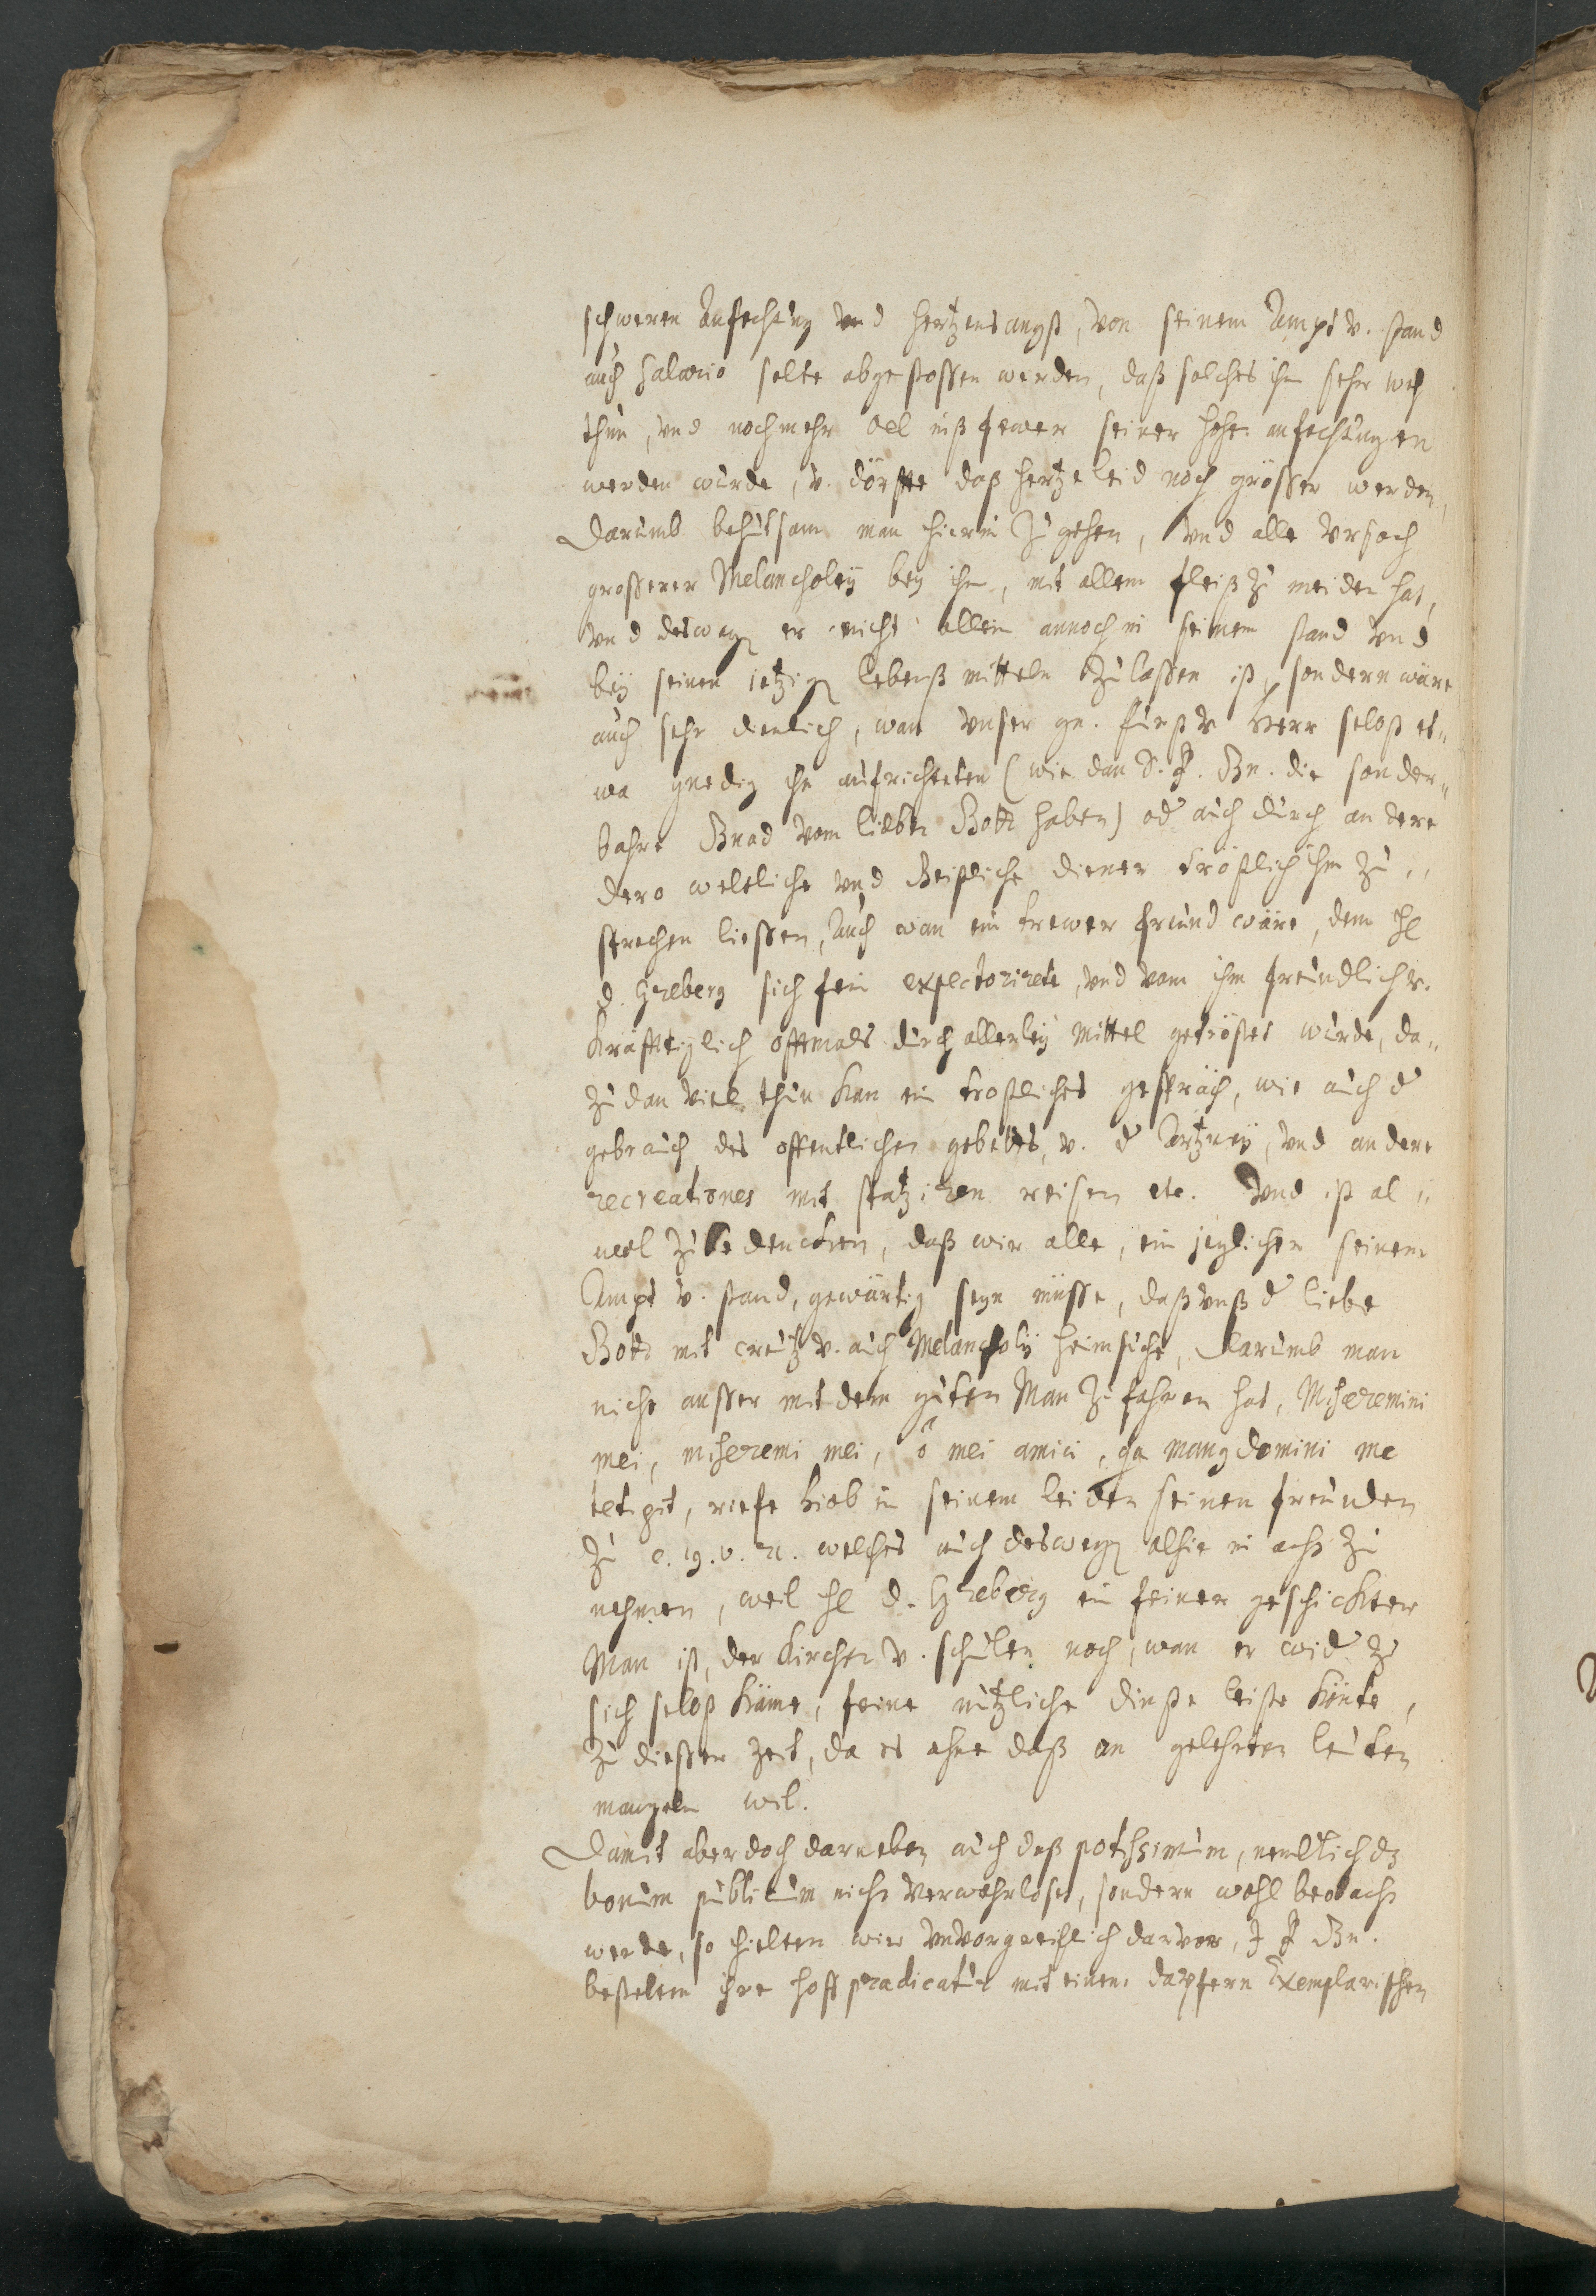 schweren Anfechtung vnd hertzens angst, von seinem Ampt v. stand
auch Salario solte abgestossen werden, daß solches ihm sehr weh
thun, vnd noch mehr oel inß fewer seiner hohen anfechtungen
werden würde, v. dörffte daß hertzeleid noch grösser werden,
Darumb behutsam man hierin zugehen, vnd alle vrsach
grosserer Melancholeÿ beÿ ihm, mit allem fleiß zu meiden hat,
vnd deswegen er nicht allein annoch in seinem stand vnd
beÿ seinen jetzigen lebenß mitteln zulassen ist, sondern wäre
auch sehr dienlich, wan vnser gn. Fürst v Herr selbst et„
wa gnedig ihn aufrichteten (wie dan S. F. Gn. die sonder„
bahre Gnad vom lieben Gott haben) od auch durch andere
dero weltliche vnd Geistliche diener tröstlich ihm zu„
sprechen liessen, Auch wan ein trewer freund wäre, dem H
D. Greberg sich fein expectorirete, vnd vom ihm freundlich v.
kräfftiglich offtmals durch allerleÿ mittel getröstet würde, da„
zu dan viel thun kan ein trostliches gespräch, wie auch d
gebrauch des offentlichen gebettes, v. d Artzneÿ, vnd andere
recreationes mit spatziren reisen etc. Vnd ist al„
weel zubedencken, daß wir alle, ein jeglicher seinem
Ampt v. stand, gewärtig seyn müsse, daß vnß d liebe
Gott mit creutz v. auch Melancholÿ heimsuche, Darumb man
nicht ausser mit dem guten Man zufahren hat, Miseremini
mei, miseremi mei, ô mei amici, qa mang domini me
tetigit, riefe Hiob in seinem leiden seinen freunden
zu c. 19. v. 21. welches auch deswegen alhie in acht zu
nehmen, weil H D. Greberg ein feiner geschickter
Man ist, der kirchen v. schulen noch, wan er wid zu
sich selbst käme, feine nützliche dinste leiste könte,
zu diesser zeit, da es ohne daß an gelehrten leuten
mangeln wil.
Damit aber doch darneben auch daß potissimum, nemblich dz
bonum publicum nicht verwahrlost, sondern wohl beobacht
werde, so hielten wir vnvorgreiflich darvor, I F Gn.
bestelten ihre hoff prædicatur mit einem dapfern Exemplarischen